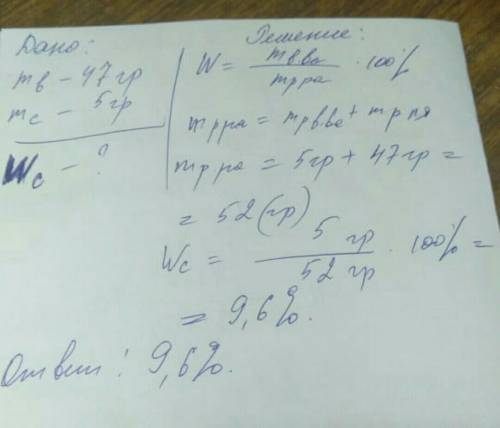 Дано:
mв – 47 гр
mс – 5 гр
Wс – ?
Решение:
W = mв.ва / mр.ра · 100%
mр.ра = mр.в.ва + mр.ля
mр.ра = 5 гр + 47 гр =
= 52 (гр)
Wс = 5 гр / 52 гр · 100% =
= 9,6%.
Ответ: 9,6%.